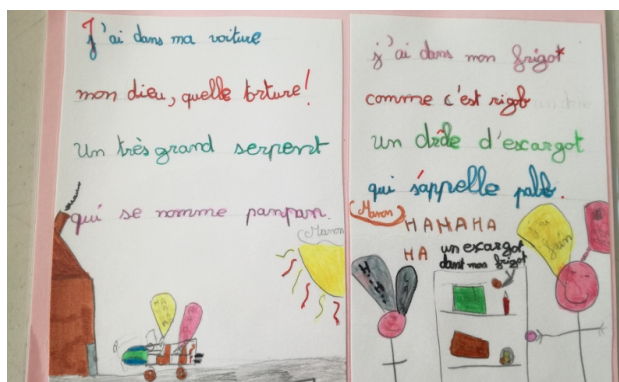 J'ai dans ma voiture
mon dieu, quelle torture!
Un très grand serpent
qui se nomme panpan.
Manon
j'ai dans mon frigot*
comme c'est rigolo
un drôle d'escargot
qui s'appelle pablo.
Manon
HAHAHA
HA
un escargot
dant mon frigot